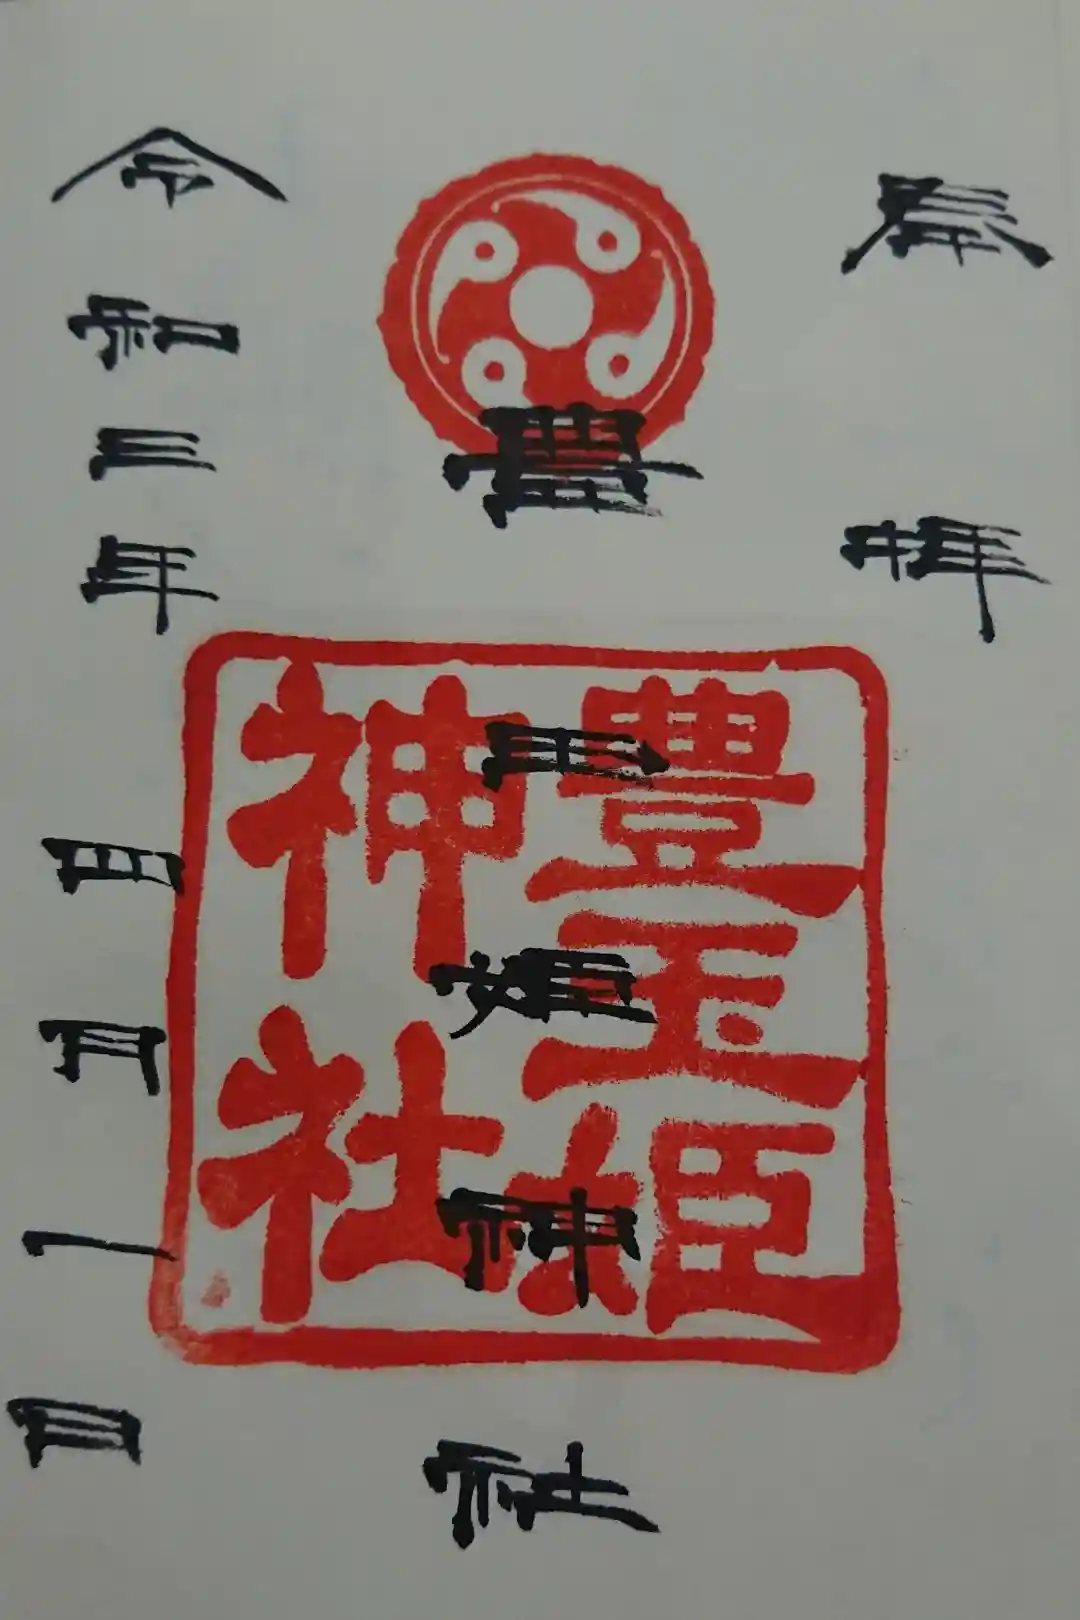 奉拝
豊玉姫神社
豊玉姫
神社
令和三年
四月一日